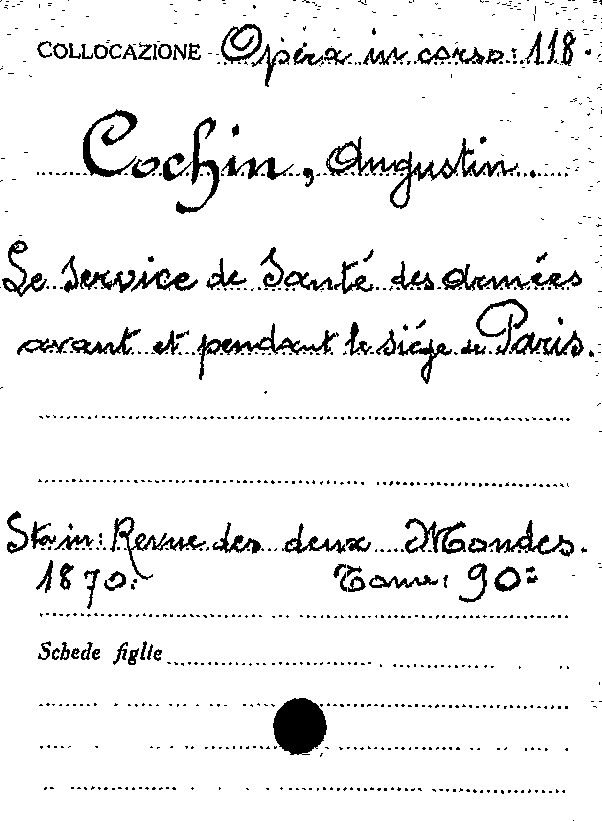 COLLOCAZIONE Opera in corso: 118.
Cochin, Augustin.
Le Service de Santé des armées
avant et pendant le siége de Paris.
Sta in: Revue des deux Mondes.
1870. Tome: 90º
Schede figlie